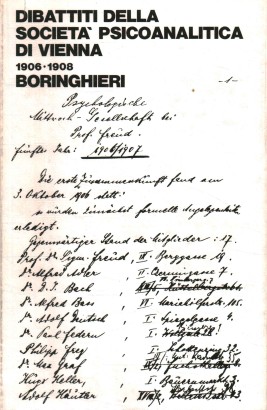 DIBATTITI DELLA
SOCIETA' PSICOANALITICA
DI VIENNA
1906-1908
BORINGHIERI
-1-
Psychologische
Mittwoch-Gesellschaft bei
Prof. Freud.
Fünftes Jahr: 1906/1907
Die erste Zusammenkunft fand am
3. Oktober 1906 statt:
es wurden zunächst formelle Angelegenheiten
erledigt.
Gegenwärtiger Stand der Mitglieder: 17.
Prof. Dr. Sigm. Freud, IX. Berggasse 19.
Dr. Alfred Adler II. Czerningasse 7.
Dr. D. J. Bach
Dr. Alfred Bass VI. Mariahilferstr. 105.
Dr. Adolf Deutsch I. Spiegelgasse 4.
Dr. Paul Federn I.
Philipp Frey
Dr. Max Graf
Hugo Heller, I. Bauernmarkt 3.
Adolf Häutler